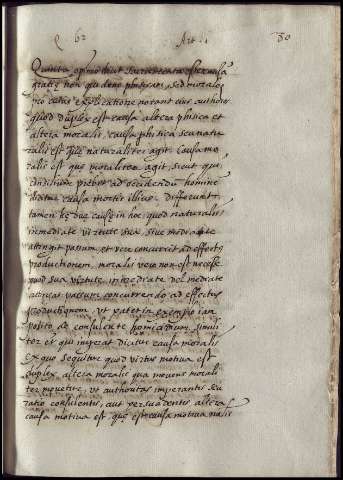 q 62 Art. 1 80
Quinta opinio dicit sacramenta esse causā
gratię non quidem phisicam, sed moralē
pro cuius explicatione norant eius authores
quod duplex est causa altera phisica et
altera moralis, causa phisica seu natu
ralis est quę naturaliter agit. Causa mo
ralis est quę moraliter agit, sicut qui
consilium prębet ad occidendū hominē
dicitur causa mortis illius, differunt
tamen hę duę causę in hoc, quod naturalis
immediate virtute sua, sive mediate
attingit passum, et vere concurrit ad effectus
productionem, moralis vero non est necesse
quod sua virtute immediate vel mediate
attingat passum concurrendo ad effectus
productionem, vt patet in exemplo iam
posito de consulente homicidium. simili
ter et qui imperat dicitur causa moralis
ex quo sequitur quod virtus motiua est
duplex, altera moralis qua mouens morali
ter mouetur, vt authoritas imperantis seu
ratio consulentis, aut persuadentis, altera
causa motiua est quę est causa motiua natu